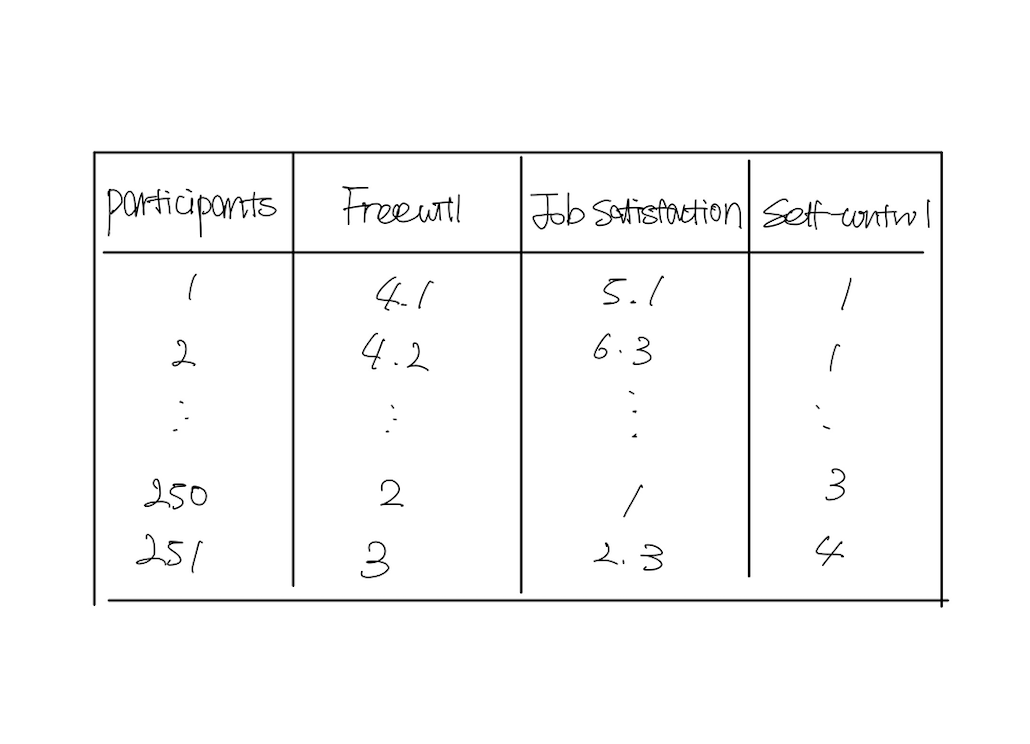 participants Freewill Job satisfaction Self-control
1 4.1 5.1 1
2 4.2 6.3 1
⋮ ⋮ ⋮ ⋮
250 2 1 3
251 3 2.3 4